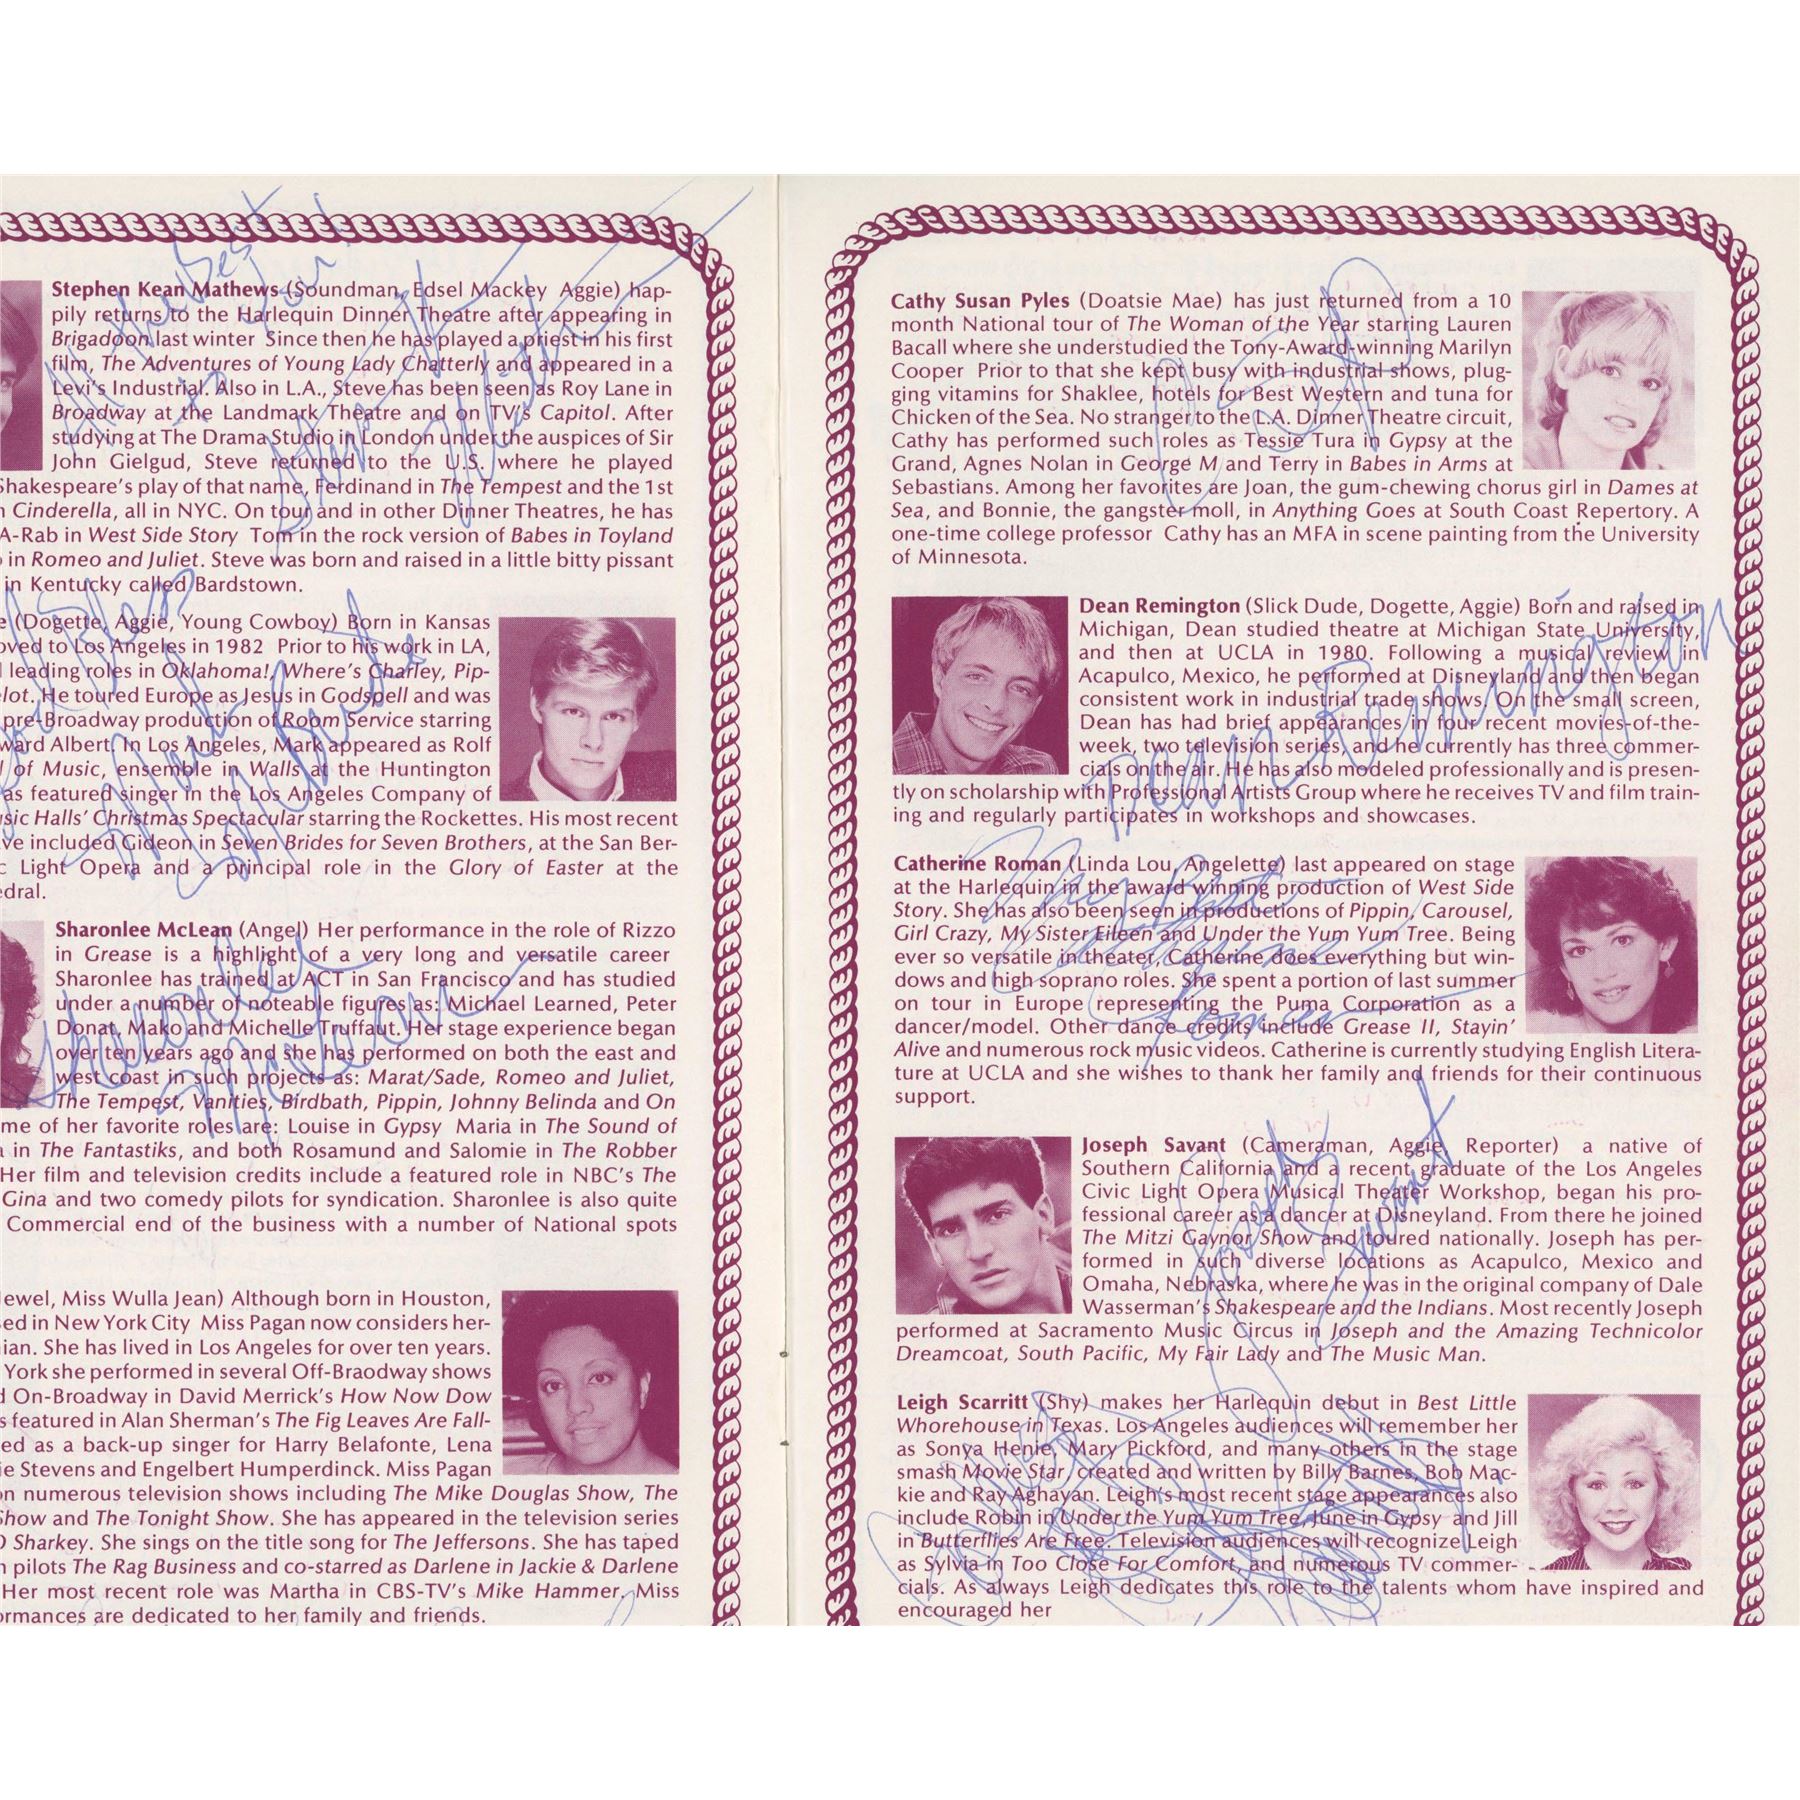 Stephen Kean Mathews (Soundman, Edsel Mackey Aggie) hap-
pily returns to the Harlequin Dinner Theatre after appearing in
Brigadoon last winter Since then he has played a priest in his first
film, The Adventures of Young Lady Chatterly and appeared in a
Levi's Industrial. Also in L.A., Steve has been seen as Roy Lane in
Broadway at the Landmark Theatre and on TV's Capitol. After
studying at The Drama Studio in London under the auspices of Sir
John Gielgud, Steve returned to the U.S. where he played
Shakespeare's play of that name, Ferdinand in The Tempest and the 1st
Cinderella, all in NYC. On tour and in other Dinner Theatres, he has
A-Rab in West Side Story Tom in the rock version of Babes in Toyland
in Romeo and Juliet. Steve was born and raised in a little bitty pissant
in Kentucky called Bardstown.
All the best
to you!
Stephen K Mathews
e (Dogette, Aggie, Young Cowboy) Born in Kansas
oved to Los Angeles in 1982 Prior to his work in LA,
leading roles in Oklahoma!, Where's Charley, Pip-
lot. He toured Europe as Jesus in Godspell and was
pre-Broadway production of Room Service starring
ward Albert. In Los Angeles, Mark appeared as Rolf
of Music, ensemble in Walls at the Huntington
as featured singer in the Los Angeles Company of
usic Halls' Christmas Spectacular starring the Rockettes. His most recent
ve included Gideon in Seven Brides for Seven Brothers, at the San Ber-
c Light Opera and a principal role in the Glory of Easter at the
edral.
Bless
Mark
Sharonlee McLean (Angel) Her performance in the role of Rizzo
in Grease is a highlight of a very long and versatile career
Sharonlee has trained at ACT in San Francisco and has studied
under a number of noteable figures as: Michael Learned, Peter
Donat, Mako and Michelle Truffaut. Her stage experience began
over ten years ago and she has performed on both the east and
west coast in such projects as: Marat/Sade, Romeo and Juliet,
The Tempest, Vanities, Birdbath, Pippin, Johnny Belinda and On
me of her favorite roles are: Louise in Gypsy Maria in The Sound of
in The Fantastiks, and both Rosamund and Salomie in The Robber
Her film and television credits include a featured role in NBC's The
Gina and two comedy pilots for syndication. Sharonlee is also quite
Commercial end of the business with a number of National spots
Sharonlee
McLean
Jewel, Miss Wulla Jean) Although born in Houston,
sed in New York City Miss Pagan now considers her-
nian. She has lived in Los Angeles for over ten years.
York she performed in several Off-Braodway shows
On-Broadway in David Merrick's How Now Dow
s featured in Alan Sherman's The Fig Leaves Are Fall-
ed as a back-up singer for Harry Belafonte, Lena
ie Stevens and Engelbert Humperdinck. Miss Pagan
on numerous television shows including The Mike Douglas Show, The
Show and The Tonight Show. She has appeared in the television series
O Sharkey. She sings on the title song for The Jeffersons. She has taped
pilots The Rag Business and co-starred as Darlene in Jackie & Darlene
Her most recent role was Martha in CBS-TV's Mike Hammer. Miss
ormances are dedicated to her family and friends.
Cathy Susan Pyles (Doatsie Mae) has just returned from a 10
month National tour of The Woman of the Year starring Lauren
Bacall where she understudied the Tony-Award-winning Marilyn
Cooper Prior to that she kept busy with industrial shows, plug-
ging vitamins for Shaklee, hotels for Best Western and tuna for
Chicken of the Sea. No stranger to the L.A. Dinner Theatre circuit,
Cathy has performed such roles as Tessie Tura in Gypsy at the
Grand, Agnes Nolan in George M and Terry in Babes in Arms at
Sebastians. Among her favorites are Joan, the gum-chewing chorus girl in Dames at
Sea, and Bonnie, the gangster moll, in Anything Goes at South Coast Repertory. A
one-time college professor Cathy has an MFA in scene painting from the University
of Minnesota.
Dean Remington (Slick Dude, Dogette, Aggie) Born and raised in
Michigan, Dean studied theatre at Michigan State University,
and then at UCLA in 1980. Following a musical review in
Acapulco, Mexico, he performed at Disneyland and then began
consistent work in industrial trade shows. On the small screen,
Dean has had brief appearances in four recent movies-of-the-
week, two television series, and he currently has three commer-
cials on the air. He has also modeled professionally and is presen-
tly on scholarship with Professional Artists Group where he receives TV and film train-
ing and regularly participates in workshops and showcases.
Dean Remington
Catherine Roman (Linda Lou, Angelette) last appeared on stage
at the Harlequin in the award winning production of West Side
Story. She has also been seen in productions of Pippin, Carousel,
Girl Crazy, My Sister Eileen and Under the Yum Yum Tree. Being
ever so versatile in theater, Catherine does everything but win-
dows and high soprano roles. She spent a portion of last summer
on tour in Europe representing the Puma Corporation as a
dancer/model. Other dance credits include Grease II, Stayin'
Alive and numerous rock music videos. Catherine is currently studying English Litera-
ture at UCLA and she wishes to thank her family and friends for their continuous
support.
My Best
Catherine
Roman
Joseph Savant (Cameraman, Aggie, Reporter) a native of
Southern California and a recent graduate of the Los Angeles
Civic Light Opera Musical Theater Workshop, began his pro-
fessional career as a dancer at Disneyland. From there he joined
The Mitzi Gaynor Show and toured nationally. Joseph has per-
formed in such diverse locations as Acapulco, Mexico and
Omaha, Nebraska, where he was in the original company of Dale
Wasserman's Shakespeare and the Indians. Most recently Joseph
performed at Sacramento Music Circus in Joseph and the Amazing Technicolor
Dreamcoat, South Pacific, My Fair Lady and The Music Man.
Joseph
Savant
Leigh Scarritt (Shy) makes her Harlequin debut in Best Little
Whorehouse in Texas. Los Angeles audiences will remember her
as Sonya Henie, Mary Pickford, and many others in the stage
smash Movie Star, created and written by Billy Barnes, Bob Mac-
kie and Ray Aghayan. Leigh's most recent stage appearances also
include Robin in Under the Yum Yum Tree, June in Gypsy and Jill
in Butterflies Are Free. Television audiences will recognize Leigh
as Sylvia in Too Close For Comfort, and numerous TV commer-
cials. As always Leigh dedicates this role to the talents whom have inspired and
encouraged her